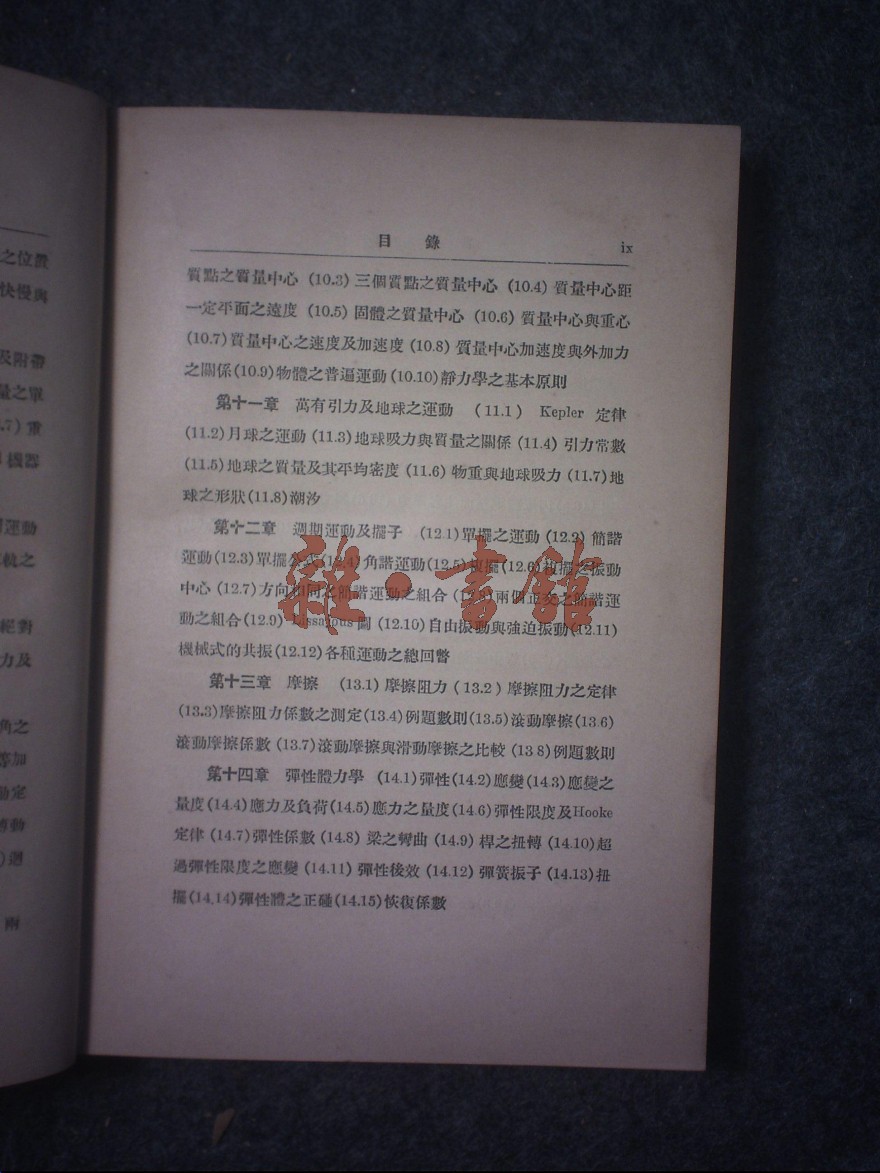 之位置
快慢與
及附帶
量之單
.7) 重
機器
運動
絕對
力及
角之
等加
動定
轉動
) 迴
兩
目 錄 ix
質點之質量中心 (10.3) 三個質點之質量中心 (10.4) 質量中心距
一定平面之遠度 (10.5) 固體之質量中心 (10.6) 質量中心與重心
(10.7) 質量中心之速度及加速度 (10.8) 質量中心加速度與外加力
之關係(10.9)物體之普遍運動(10.10)靜力學之基本原則
第十一章 萬有引力及地球之運動 (11.1) Kepler 定律
(11.2)月球之運動 (11.3)地球吸力與質量之關係 (11.4) 引力常數
(11.5)地球之質量及其平均密度 (11.6) 物重與地球吸力 (11.7)地
球之形狀(11.8)潮汐
第十二章 週期運動及擺子 (12.1)單擺之運動 (12.2) 簡諧
運動(12.3)單擺公式(12.4)角諧運動(12.5)複擺(12.6)複擺之振動
中心 (12.7)方向相同之簡諧運動之組合 (12.8)兩個正交之簡諧運
動之組合(12.9) Lissajous圖 (12.10)自由振動與強迫振動(12.11)
機械式的共振(12.12)各種運動之總回瞥
第十三章 摩擦 (13.1)摩擦阻力(13.2) 摩擦阻力之定律
(13.3)摩擦阻力係數之測定(13.4)例題數則(13.5)滾動摩擦(13.6)
滾動摩擦係數 (13.7)滾動摩擦與滑動摩擦之比較 (13 8)例題數則
第十四章 彈性體力學 (14.1)彈性(14.2)應變(14.3)應變之
量度(14.4)應力及負荷(14.5)應力之量度(14.6)彈性限度及Hooke
定律 (14.7)彈性係數 (14.8) 梁之彎曲 (14.9) 桿之扭轉 (14.10)超
過彈性限度之應變 (14.11) 彈性後效 (14.12) 彈簧振子 (14.13)扭
擺(14.14)彈性體之正碰(14.15)恢復係數
雜·書館